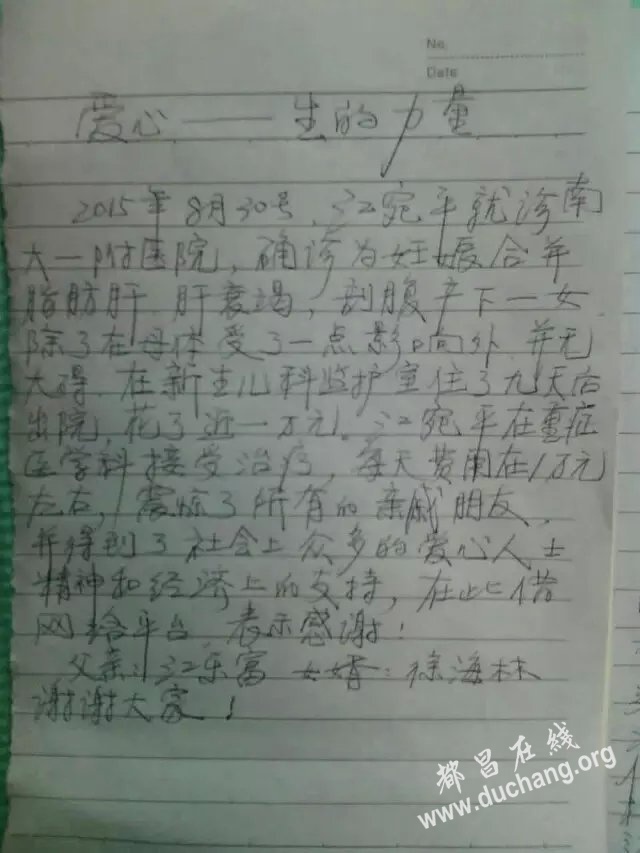 No
Date
爱心——生的力量
2015年8月30号,江宛平就诊南
大一附医院,确诊为妊娠合并
脂肪肝 肝衰竭,剖腹产下一女
除了在母体受了一点影响外 并无
大碍.在新生儿科监护室住了九天后
出院,花了近一万元。江宛平在重症
医学科接受治疗,每天费用在1万元
左右,震惊了所有的亲戚朋友,
并得到了社会上众多的爱心人士
精神和经济上的支持,在此借
网络平台 表示感谢!
父亲:江乐富 女婿:徐海林
谢谢大家!
都昌在线
www.duchang.org